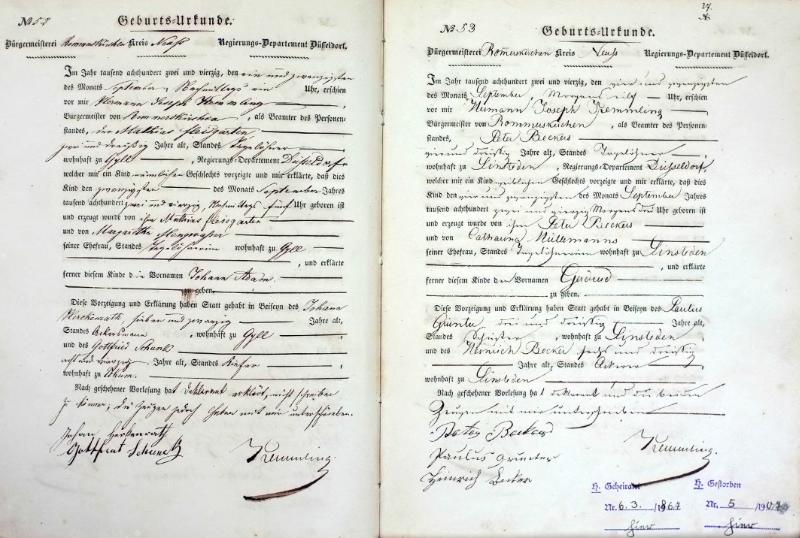 Geburts-Urkunde.
Bürgermeisterei Rommerskirchen Kreis Neuß Regierungs-Departement Düsseldorf.
Im Jahr tausend achthundert zwei und vierzig, den ein und zwanzigsten
des Monats September Nachmittags Uhr, erschien
vor mir Hermann Joseph Kremmling
Bürgermeister von Rommerskirchen, als Beamter des Personen-
standes, der Mathias
zwei und dreißig Jahre alt, Taglöhner
wohnhaft zu Gyll, Regierungs-Departement Düsseldorf
welcher mir ein Kind männlichen Geschlechts vorzeigte und mir erklärte, daß dies
Kind den zwanzigsten des Monats September Jahres
tausend achthundert zwei und vierzig, Nachmittags fünf Uhr geboren ist
und erzeugt wurde von ihm Mathias
und von Margaretha
seiner Ehefrau, Standes Taglöhnerin wohnhaft zu Gyll
, und erklärte
ferner diesem Kinde die Vornamen Johann Adam
zu geben.
Diese Vorzeigung und Erklärung haben Statt gehabt in Beiseyn des Johann
Herkenrath sieben und zwanzig Jahre alt,
Standes Ackersmann, wohnhaft zu Gyll
und des Gottfried Schunck
acht und vierzig Jahre alt, Standes
wohnhaft zu
Nach geschehener Vorlesung hat Deklarant erklärt, nicht schreiben
zu können, die Zeugen jedoch haben mit mir unterschrieben.
Johann Herkenrath
Gottfried Schunck
Kremmling
№ 53
Geburts-Urkunde.
Bürgermeisterei Rommerskirchen Kreis Neuß Regierungs-Departement Düsseldorf.
Im Jahr tausend achthundert zwei und vierzig, den vier und zwanzigsten
des Monats September, Morgens elf Uhr, erschien
vor mir Hermann Joseph Kremmling
Bürgermeister von Rommerskirchen, als Beamter des Personen-
standes, Peter Beckers
vier und dreißig Jahre alt, Standes Taglöhner
wohnhaft zu Sinsteden, Regierungs-Departement Düsseldorf,
welcher mir ein Kind weiblichen Geschlechts vorzeigte und mir erklärte, daß dies
Kind den vier und zwanzigsten des Monats September Jahres
tausend achthundert zwei und vierzig Morgens drei Uhr geboren ist
und erzeugt wurde von ihm Peter Beckers
und von Catharina
seiner Ehefrau, Standes Taglöhnerin wohnhaft zu Sinsteden
, und erklärte
ferner diesem Kinde den Vornamen Gudrud
zu geben.
Diese Vorzeigung und Erklärung haben Statt gehabt in Beiseyn des Paulus
drei und dreißig Jahre alt,
Standes Schuster, wohnhaft zu Sinsteden
und des Heinrich Becker sechs und dreißig
Jahre alt, Standes Ackerer
wohnhaft zu Sinsteden
Nach geschehener Vorlesung hat Deklarant und die beiden
Zeugen mit mir unterschrieben
Peter Beckers
Paulus
Heinrich Becker
Kremmling.
H. Geheiratet H. Gestorben
Nr. 6.3./1867 Nr. 5/190
hier hier